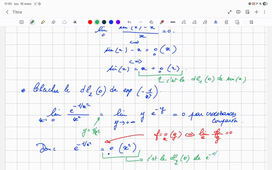 lim sin(x) - x / x = 0.
0
<=>
sin(x) - x = o(x)
<=>
sin(x) = x + o(x)
c'est le dl₁(0) de sin(x)
• Cherche le dl₂(0) de exp(-1/x²)
lim e^(-1/x²) / x² = lim y e^(-y) = 0 par croissances
x→0 y→+∞ comparées.
y = 1/x²
f = o(g) <=> lim f/g = 0
Donc e^(-1/x²) = o(x²)
c'est le dl₂(0) de